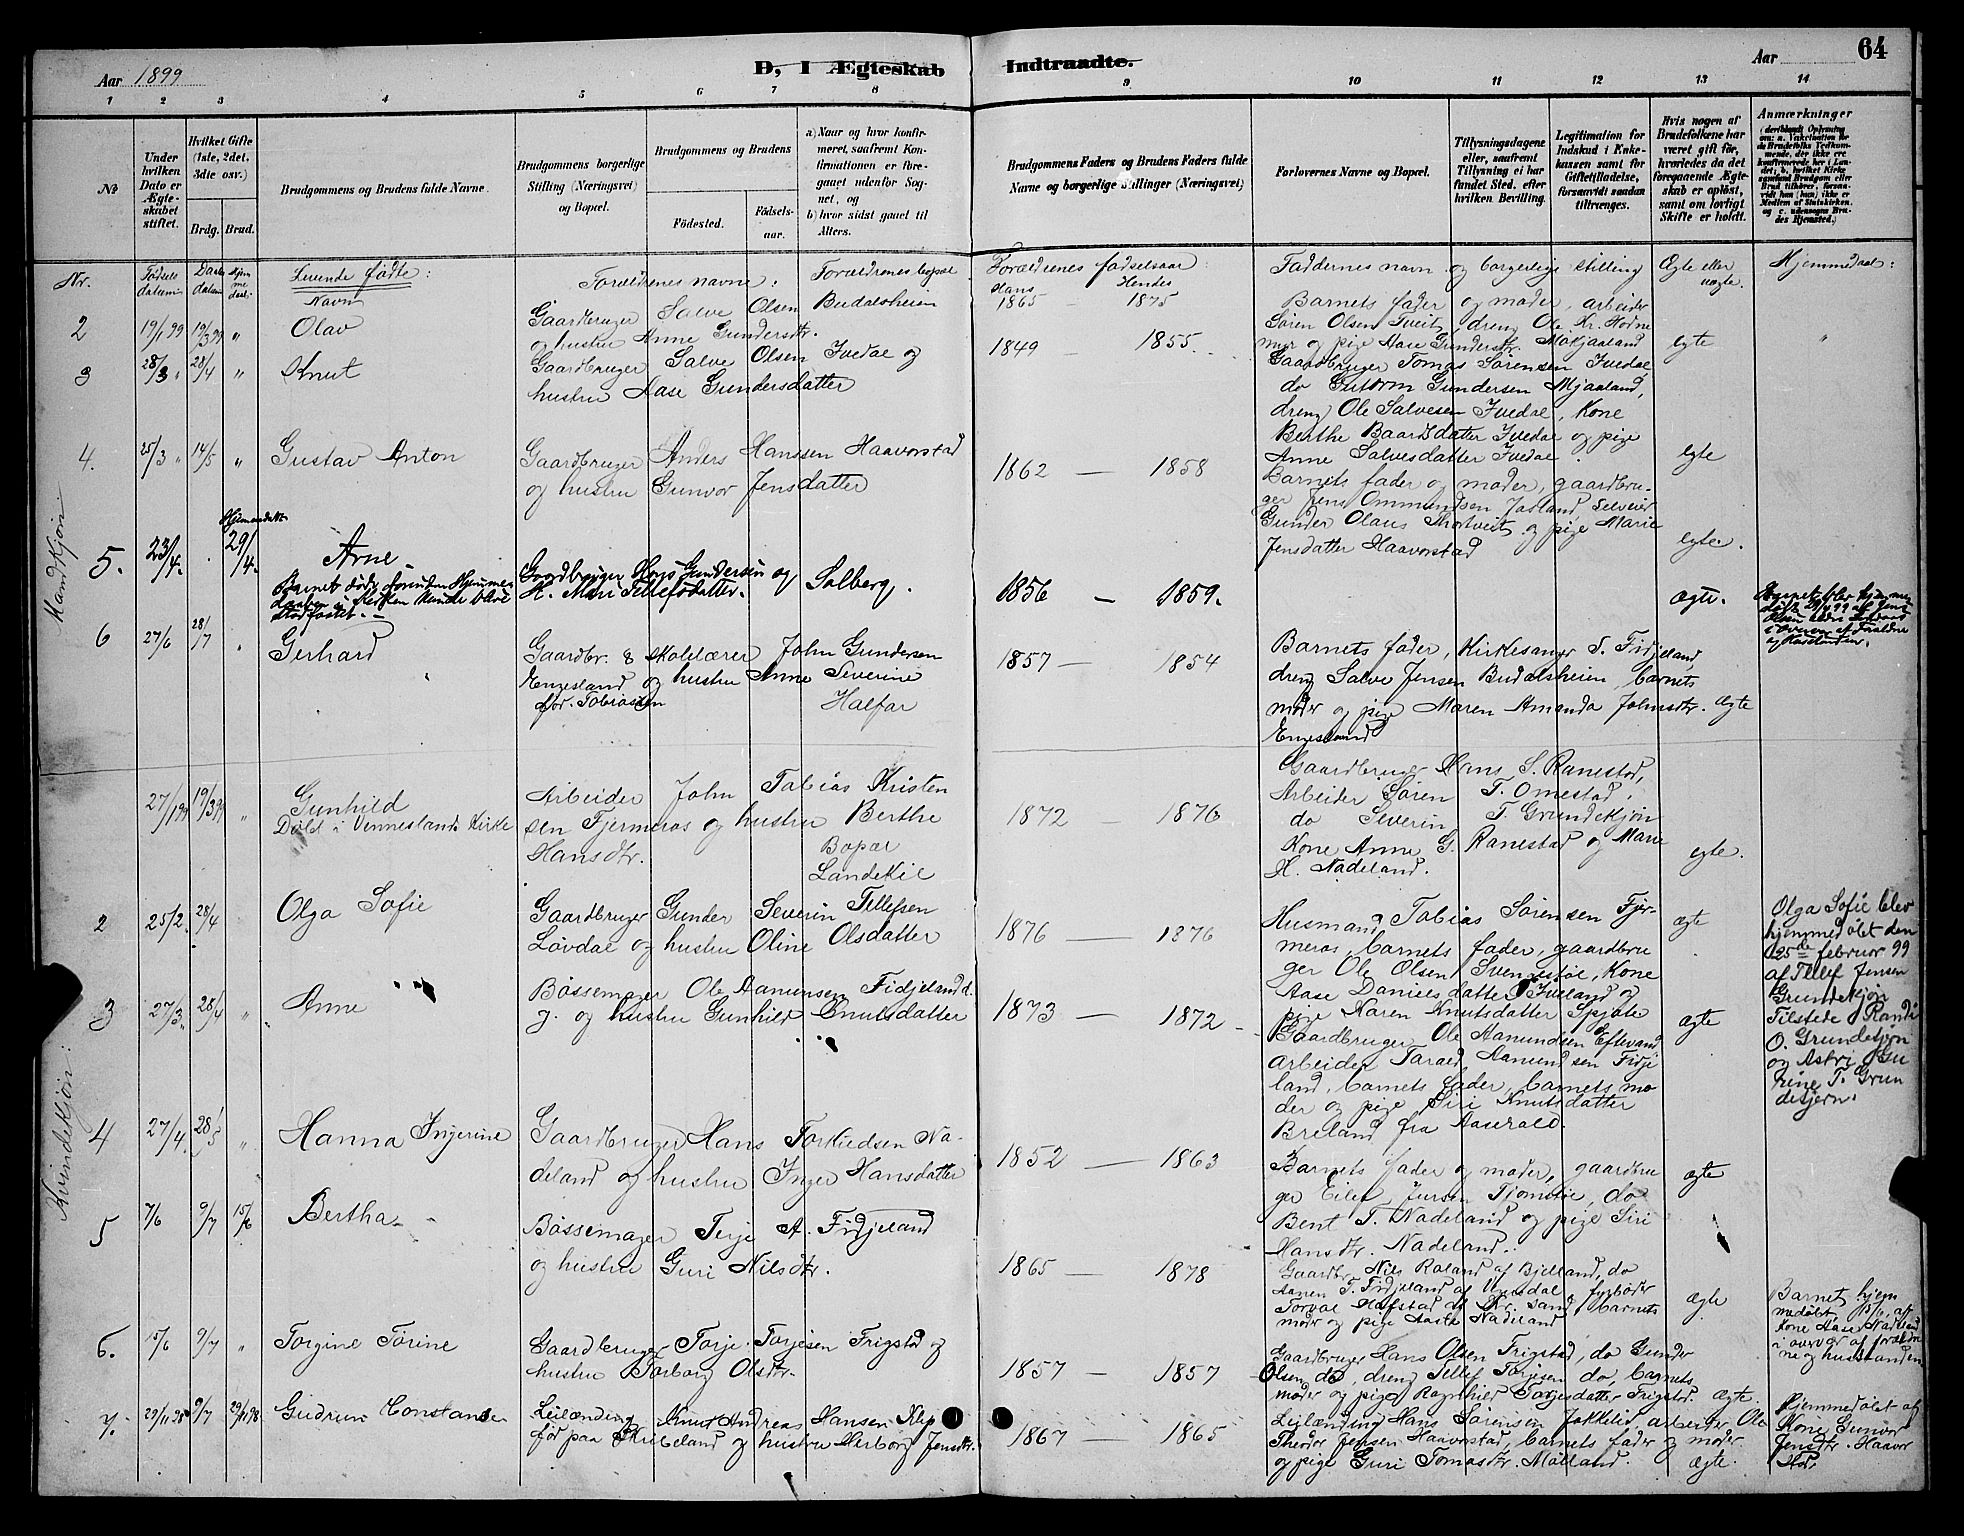 Aar 1899
D, I Ægteskab Indtraadte.
Aar 64
1 2 3 4 5 6 7 8 9 10 11 12 13 14
No
Under hvilken Dato er Ægteskabet stiftet.
Hvilket Gifte (1ste, 2det, 3die osv.)
Brdg. Brud.
Brudgommens og Brudens fulde Navne.
Brudgommens borgerlige Stilling (Næringsvei) og Bopæl.
Brudgommens og Brudens
Fødested.
Fødselsaar.
a) Naar og hvor konfirmeret, saafremt Konfirmationen er foregaaet udenfor Sognet, og
b) hvor sidst gaaet til Alters.
Brudgommens Faders og Brudens Faders fulde Navne og borgerlige Stillinger (Næringsvei)
Forlovernes Navne og Bopæl.
Tillysningsdagene eller, saafremt Tillysning ei har fundet Sted, efter hvilken Bevilling.
Legitimation for Indskud i Enkekassen samt for Giftetilladelse, forsaavidt saadan tiltrænges.
Hvis nogen af Brudefolkene har været gift før, hvorledes da det foregaaende Ægteskab er opløst, samt om lovligt Skifte er holdt.
Anmærkninger
Nr. Fødsels datum Daabs datum Hjemmedaab. Levende fødte: Navn Forældrenes navne: Forældrenes bopæl Forældrenes fødselsaar Hans Hendes Faddernes navn og borgerlige stilling Ægte eller uægte. Hjemmedaab:
Mandkjøn
2 19/1 99 19/3 99 " Olav Gaardbruger Salve Olsen Budalsheien
og hustru Anne Gundersdtr.
1865 - 1875
Barnets fader og moder, arbeider
Søren Olsen Tveit, dreng Ole Kr. Hodne
myr og pige Aase Gundersdtr. Mokjaaland
egte "
3 28/3 " 28/4 " Knut Gaardbruger Salve Olsen Ivedal og
hustru Aase Gundersdatter
1849 - 1855
Gaardbruger Tomas Sørensen Ivedal,
do Guttorm Gundersen Mjaaland,
dreng Ole Salvesen Ivedal, Kone
Berthe Baardsdatter Ivedal og pige
Anne Salvesdatter Ivedal.
egte
4. 25/3 " 14/5 " Gustav Anton Gaardbruger Anders Hanssen Haavorstad
og hustru Gunvor Jensdatter
1862 — 1858
Barnets fader og moder, gaardbru-
ger Jens Ommundsen Jaaland, Selveier
Gunder Olaus Thortveit og pige Marie
Jensdatter Haavorstad
egte.
5. 23/4. Hjemmedøbt 29/4. Arne
Barnet døde foruden Hjemme-
daaben i Kirken kunde blive
stadfæstet.—
Gaardbruger Hans Gundersen og Solberg.
H. Mari Tellefsdatter.
1856 — 1859.
ægte.
Barnet blev hjemme
døbt 29/4 99 af Jens
6 27/6 28/7 " Gerhard Gaardbr. & skolelærer John Gundersen
Engesland og hustru Anne Severine
før. Tobiassen Halfar
1857 — 1854
Barnets fader, Kirkesanger S. Fidjeland,
dreng Salve Jensen Budalsheien, barnets
moder og pige Maren Amanda Johnsdtr.
Engesland
ægte
Kvindekjøn:
27/1 99 19/3 99 " Gunhild
Døbt i Vennesland Kirke
Arbeider John Tobias Kristen
sen Fjermeros og hustru Berthe
Hansdtr. Bopæl
Landekil
1872 — 1876
Gaardbruger Hans S. Ranestad,
Arbeider Søren T. Omestad,
do Severin T. Grundekjøn
Kone Anne G. Ranestad og Marie
H. Nadeland.
egte.
2 25/2. 28/4 Olga Sofie Gaardbruger Gunder Severin Tellefsen
Løvdal og hustru Oline Olsdatter
1876 — 1876
Husmand Tobias Sørensen Fjer-
meros, barnets fader, gaardbru
ger Ole Olsen Svenestøl, Kone
Aase Danielsdatter Iveland og
pige Karen Knutsdatter Spjote
ægte
Olga Sofie blev
hjemmedøbt den
25de februar 99
af Tellef Jensen
Grundekjøn
Tilstede Randi
O. Grundetjøn
og Astri Gu
rine T. Grun
detjern.
3 27/3. 28/4 " Anne Bøssemager Ole Aamunsen Fidjeland d.
y. og hustru Gunhild Knutsdatter
1873 — 1872
Gaardbruger Ole Aamundsen Eftevand
arbeider Tarald Aamundsen Fidje
land, barnets fader, barnets mo
der og pige Siri Knutsdatter
Breland fra Aaserald.
ægte
4 27/4. 28/5 " Hanna Ingerine Gaardbruger Hans Torkildsen Na-
deland og hustru Inger Hansdatter
1852 — 1863
Barnets fader og moder, gaardbru
ger Eilef Jursen Tjomstøl, do
Bent T. Nadeland og pige Siri
Hansdtr. Nadeland.
ægte
5 7/6 9/7 15/6 Bertha Bøssemager Terje A. Fidjeland
og hustru Guri Nilsdtr.
1865 — 1878
Gaardbr. Nils Roland af Bjelland, do
Aanen T. Fidjeland af Vensdal, fyrbøder
Torval Hafstad af Kr. sand, barnets
moder og pige Aaste Nadeland
ægte
Barnet hjem
medøbt 15/6 af
Kone Aase Nadeland
i overvær af forældre
ne og husstanden
6. 15/6 9/7 " Torgine Torine Gaardbruger Torje Torjesen Frigstad og
hustru Torborg Olsdtr.
1857 — 1857
Gaardbruger Hans Olsen Frigstad, do Gunder
Olsen do, dreng Tellef Torjesen do, barnets
moder og pige Ragnhild Torjesdatter Frigstad.
ægte
7. 29/11 98 9/7 29/11 98 Gudrun Constanse Leilænding Knut Andreas Hansen Klep
før paa Skribeland og hustru Herborg Jensdtr.
1867 — 1865
Leilænding Hans Sørensen Jokkelid, arbeider Ole
Theodor Jensen Haavorstad, barnets fader og moder
og pige Guri Tomasdtr. Mølland.
ægte.
Hjemmedøbt af
Kone Gunvor
Jensdtr. Haavor
stad